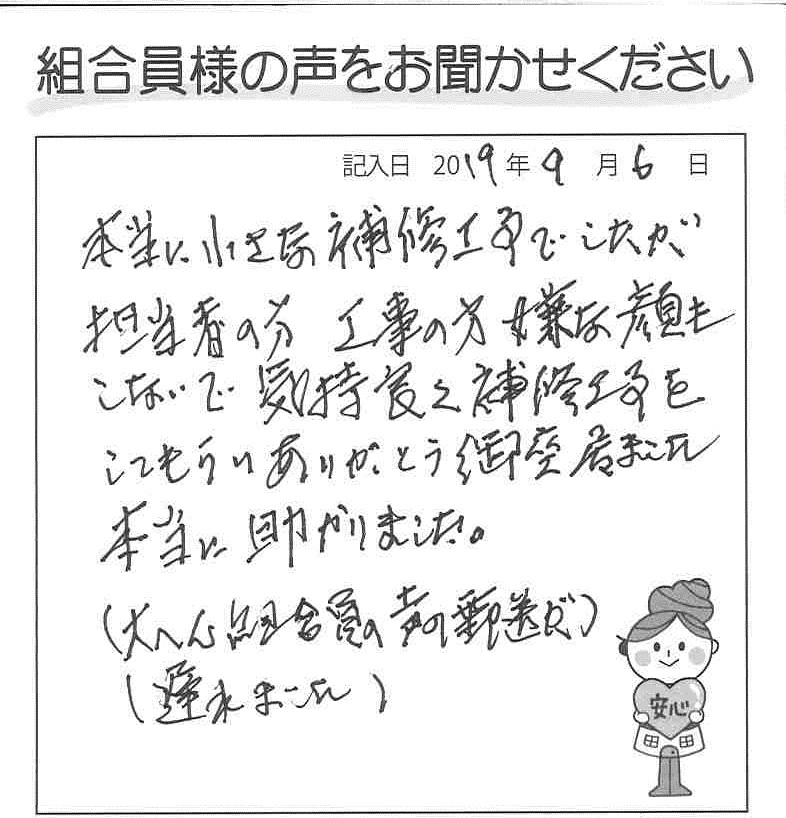 組合員様の声をお聞かせください
記入日 2019年9月6日
本当に小さな補修工事でしたが
担当者の方 工事の方 嫌な顔も
しないで 気持良く補修工事を
してもらいありがとう御座居ました
本当に助かりました。
(大へん組合員の声の郵送が)
(遅れました)
安心